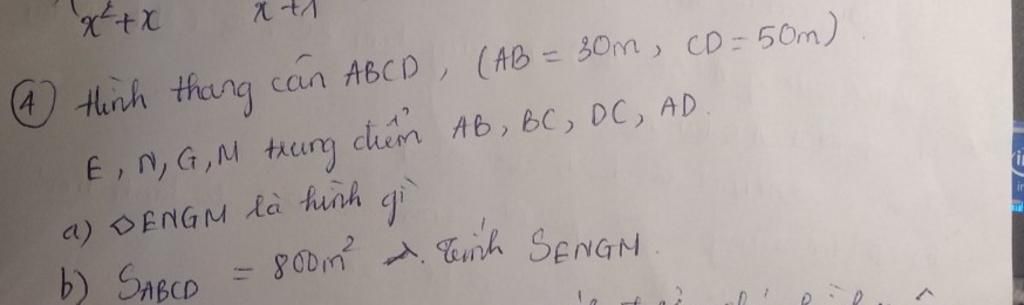 x²+x x+1
④ Hình thang cân ABCD, (AB = 30m, CD = 50m)
E, N, G, M trung điểm AB, BC, DC, AD.
a) ◇ENGM là hình gì
b) SABCD = 800m² . Tính SENGM.